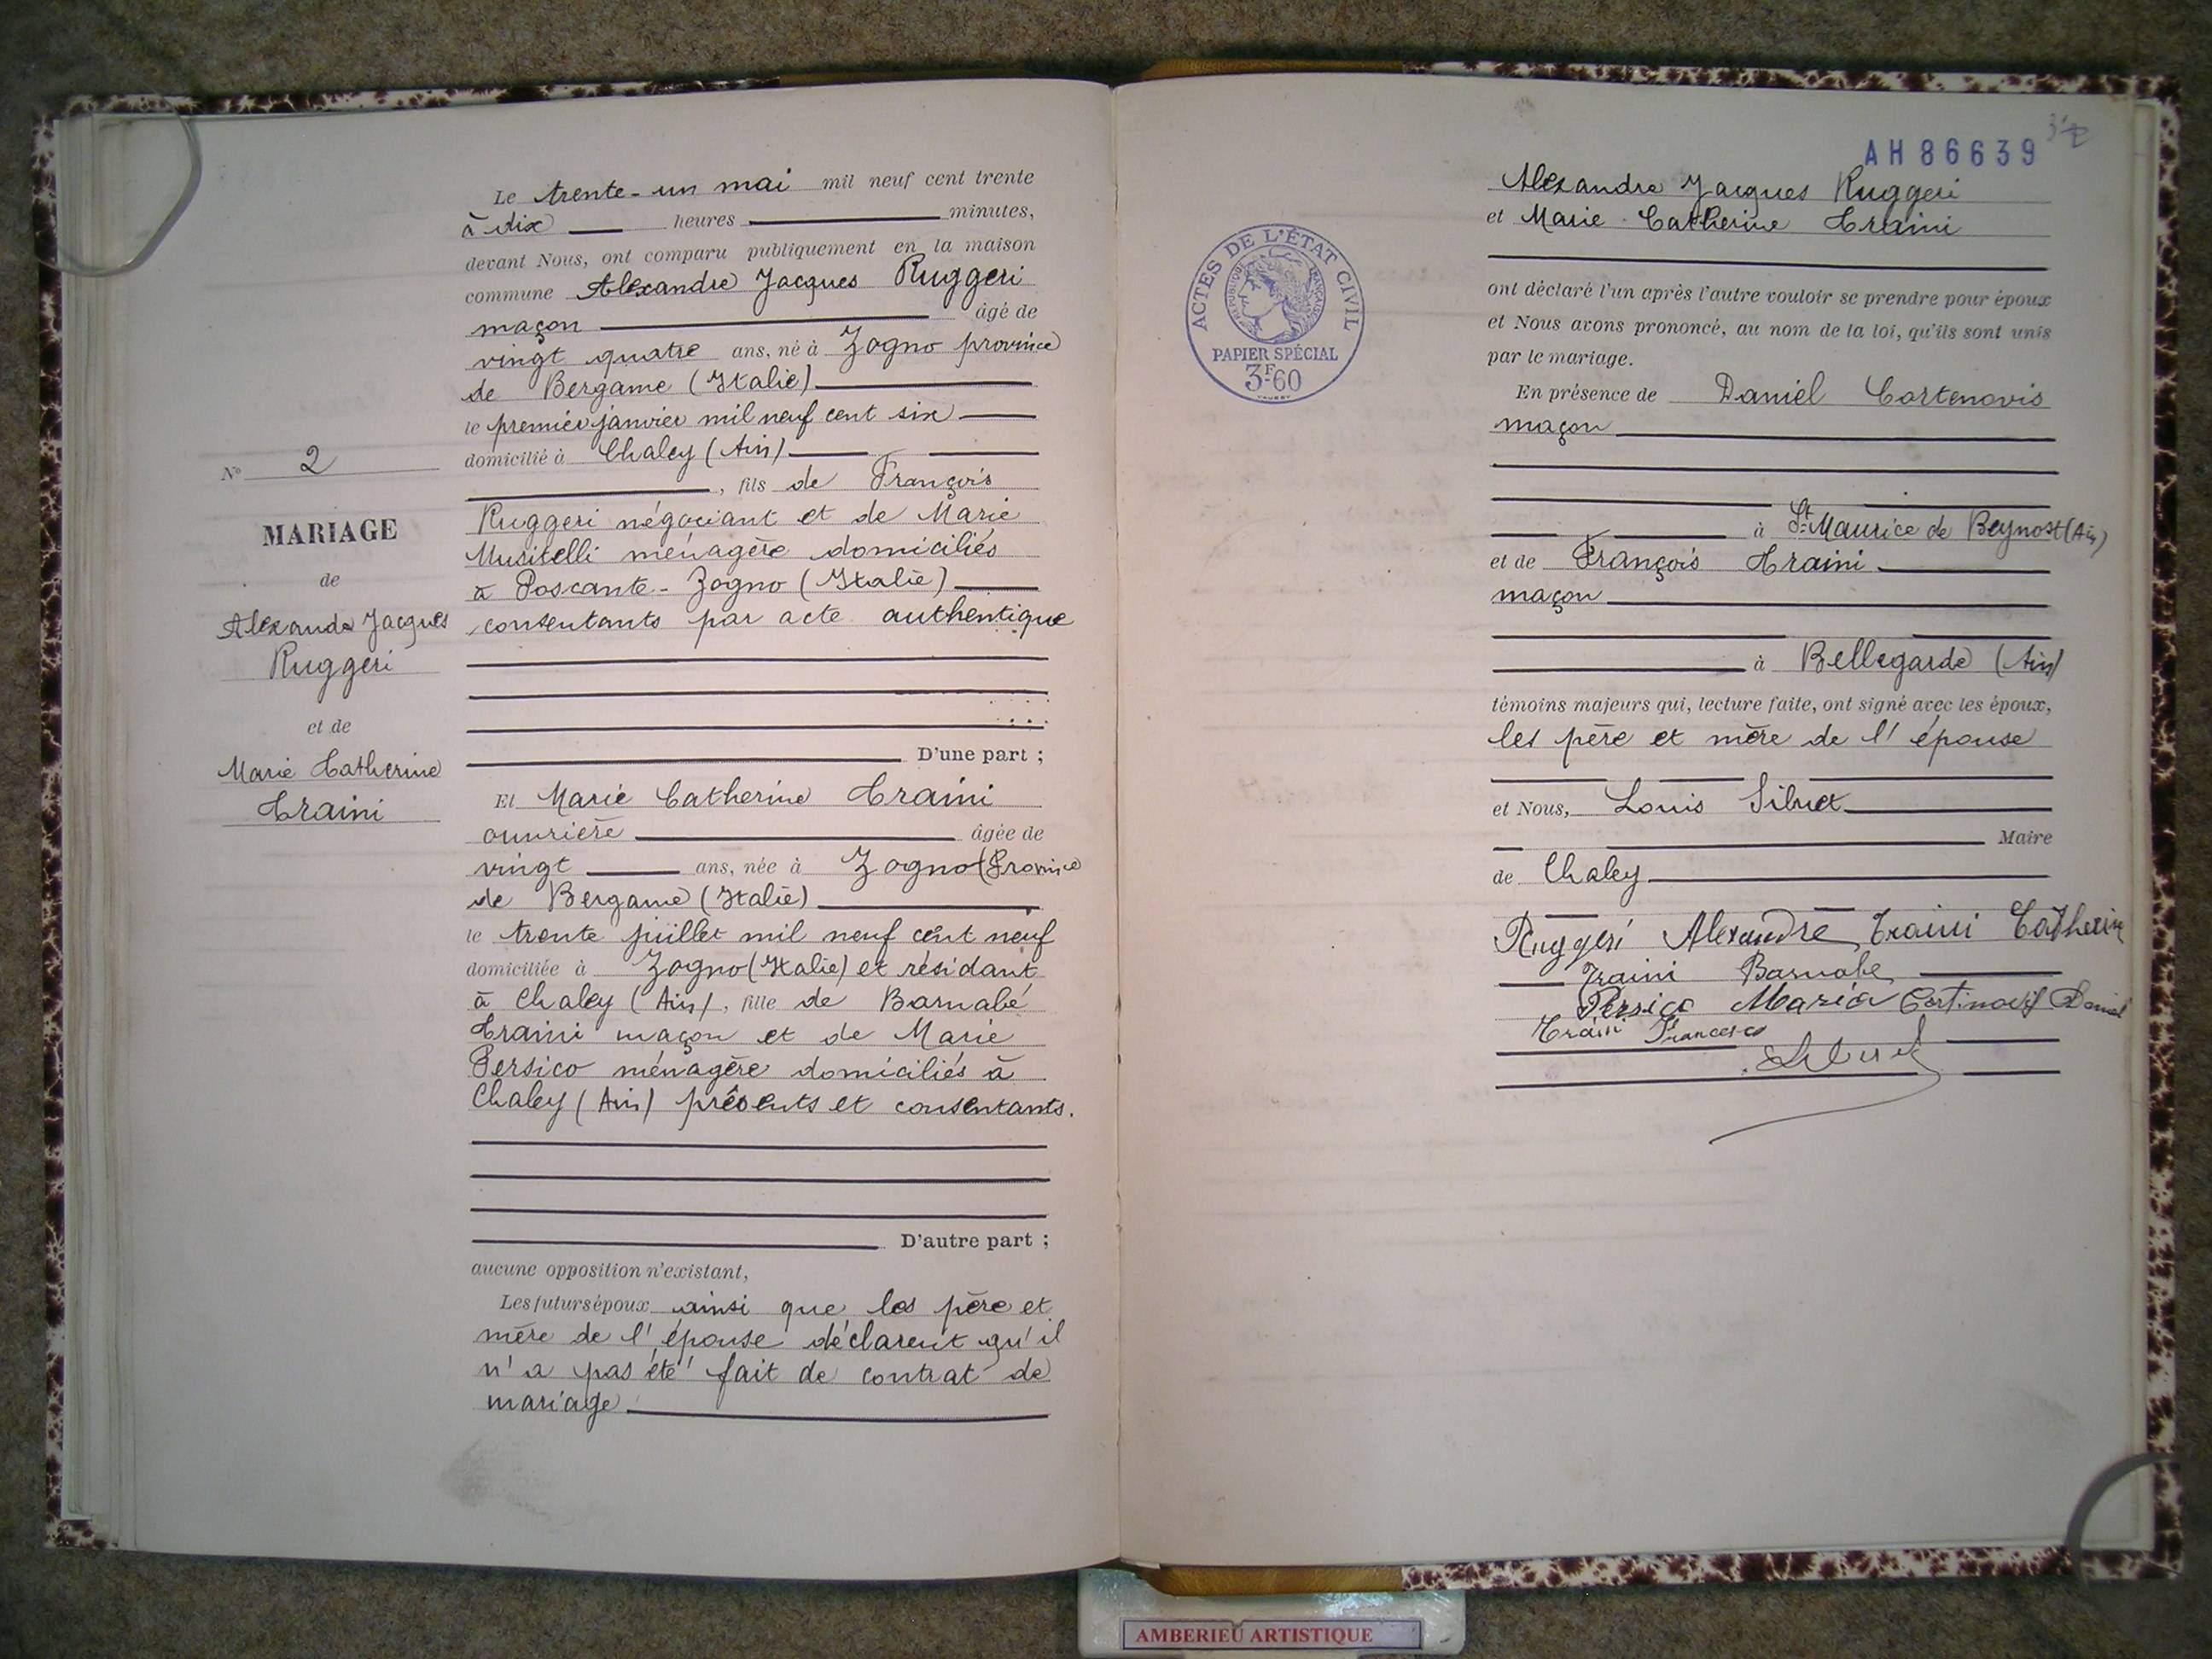 Le trente-un mai mil neuf cent trente
à dix heures minutes,
devant Nous, ont comparu publiquement en la maison
commune Alexandre Jacques Ruggeri
maçon âgé de
vingt quatre ans, né à Zogno province
de Bergame (Italie)
le premier janvier mil neuf cent six
domicilié à Chaley (Ain)
, fils de François
Ruggeri négociant et de Marie
Musitelli ménagère domiciliés
à Poscante - Zogno (Italie)
consentants par acte authentique
D'une part ;
Et Marie Catherine Traini
ouvrière âgée de
vingt ans, née à Zogno (Province
de Bergame (Italie)
le trente juillet mil neuf cent neuf
domiciliée à Zogno (Italie) et résidant
à Chaley (Ain), fille de Barnabé
Traini maçon et de Marie
Persico ménagère domiciliés à
Chaley (Ain) présents et consentants.
D'autre part ;
aucune opposition n'existant,
Les futurs époux ainsi que les père et
mère de l'épouse déclarent qu'il
n'a pas été fait de contrat de
mariage
N° 2
MARIAGE
de
Alexandre Jacques
Ruggeri
et de
Marie Catherine
Traini
AH 86639
ACTES DE L'ÉTAT CIVIL
RÉPUBLIQUE FRANÇAISE
PAPIER SPÉCIAL
3F60
Alexandre Jacques Ruggeri
et Marie Catherine Traini
ont déclaré l'un après l'autre vouloir se prendre pour époux
et Nous avons prononcé, au nom de la loi, qu'ils sont unis
par le mariage.
En présence de Daniel Cortenovis
maçon
à St Maurice de Beynost (Ain)
et de François Traini
maçon
à Bellegarde (Ain)
témoins majeurs qui, lecture faite, ont signé avec les époux,
les père et mère de l'épouse
et Nous, Louis Sibuet
Maire
de Chaley
Ruggeri Alexandre Traini Catherin
Traini Barnabe
Persico Maria Cortinovis Daniel
Traini Francesco
Sibuet
AMBERIEU ARTISTIQUE